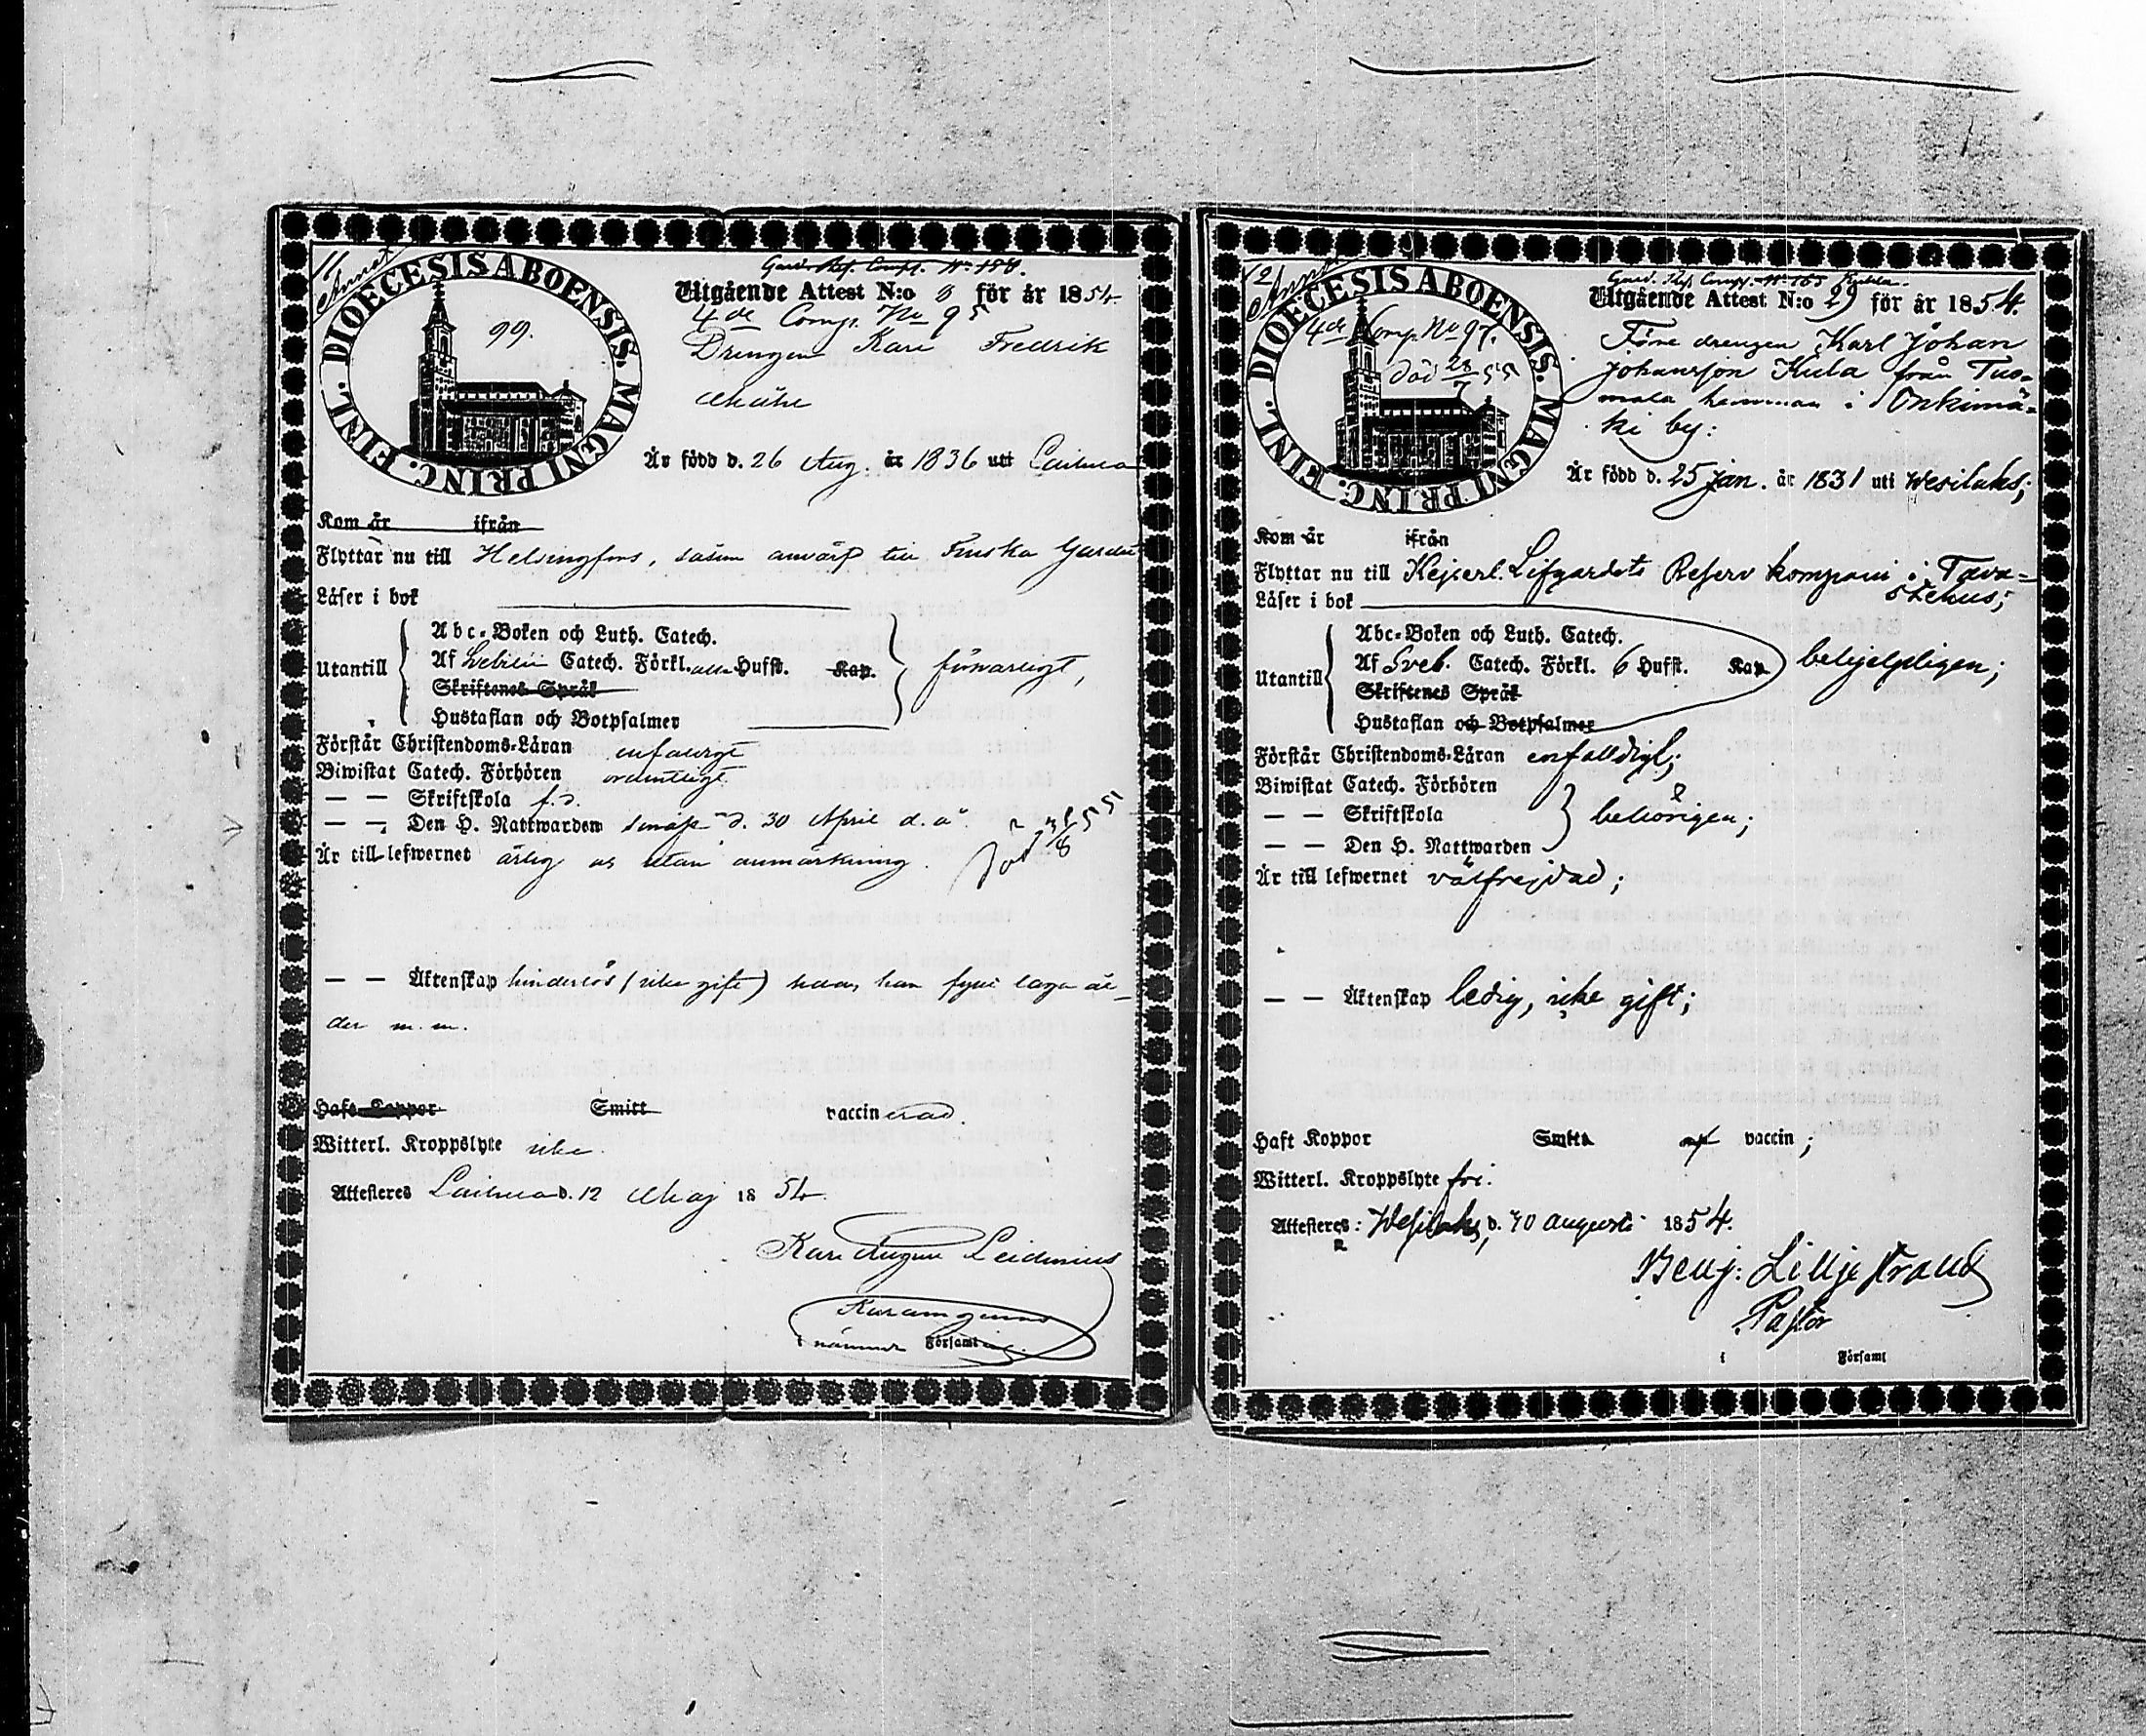 11
Annot
DIOECESIS ABOENSIS. MAGNI PRINC. FINL.
99.
Gard. Res. Comp. No 158.
Utgående Attest N:o 3 för år 1854.
4de Comp. No 95
Drengen Karl Fredrik
Är född d. 26 Aug. år 1836 uti Laihia
Kom år ifrån
Flyttar nu till Helsingfors, såsom anvärf till Finska Gardet
Läser i bok
Utantill
Abc-Boken och Luth. Catech.
Af Svebilii Catech. Förkl. alla Hufst. Kap.
Skriftenes Språk
Hustaflan och Botpsalmer
försvarligt,
Förstår Christendoms-Läran enfaldigt
Biwistat Catech. Förhören ordentligt
— — Skriftskola f.d.
— — Den H. Nattwarden d. 30 April d. å.
Är till lefwernet ärlig och utan anmärkning.
död 31/8 55
— — Äktenskap hinderlös (icke gift) når han fyllt laga ål-
der m. m.
Haft Koppor Smitt vaccinerad.
Witterl. Kroppslyte icke.
Attesteres Laihia d. 12 Maj 1854.
Karl August Leidenius
i nämnde Församling.
12
DIOECESIS ABOENSIS. MAGNI PRINC. FINL.
4de Comp. No 97.
död 28/7 55
Gard. Res. Comp. No 165
Utgående Attest N:o 29 för år 1854.
Före drengen Karl Johan
Johansson Kula från Tuo-
mala hemman i Onkimä-
ki by:
Är född d. 25 jan. år 1831 uti Wesilaks;
Kom år ifrån
Flyttar nu till Kejserl. Lifgardets Reserv kompani i Tava-
stehus;
Läser i bok
Utantill
Abc-Boken och Luth. Catech.
Af Sveb. Catech. Förkl. 6 Hufst. Kap.
Skriftenes Språk
Hustaflan och Botpsalmer
behjelpligen;
Förstår Christendoms-Läran enfalldigt;
Biwistat Catech. Förhören
— — Skriftskola
— — Den H. Nattwarden
behörigen;
Är till lefwernet välfrejdad;
— — Äktenskap ledig, icke gift;
Haft Koppor Smitta af vaccin;
Witterl. Kroppslyte fri.
Attesteres: Wesilaks, d. 10 augusti 1854.
Benj: Lilljestrand
Pastor
i Församl